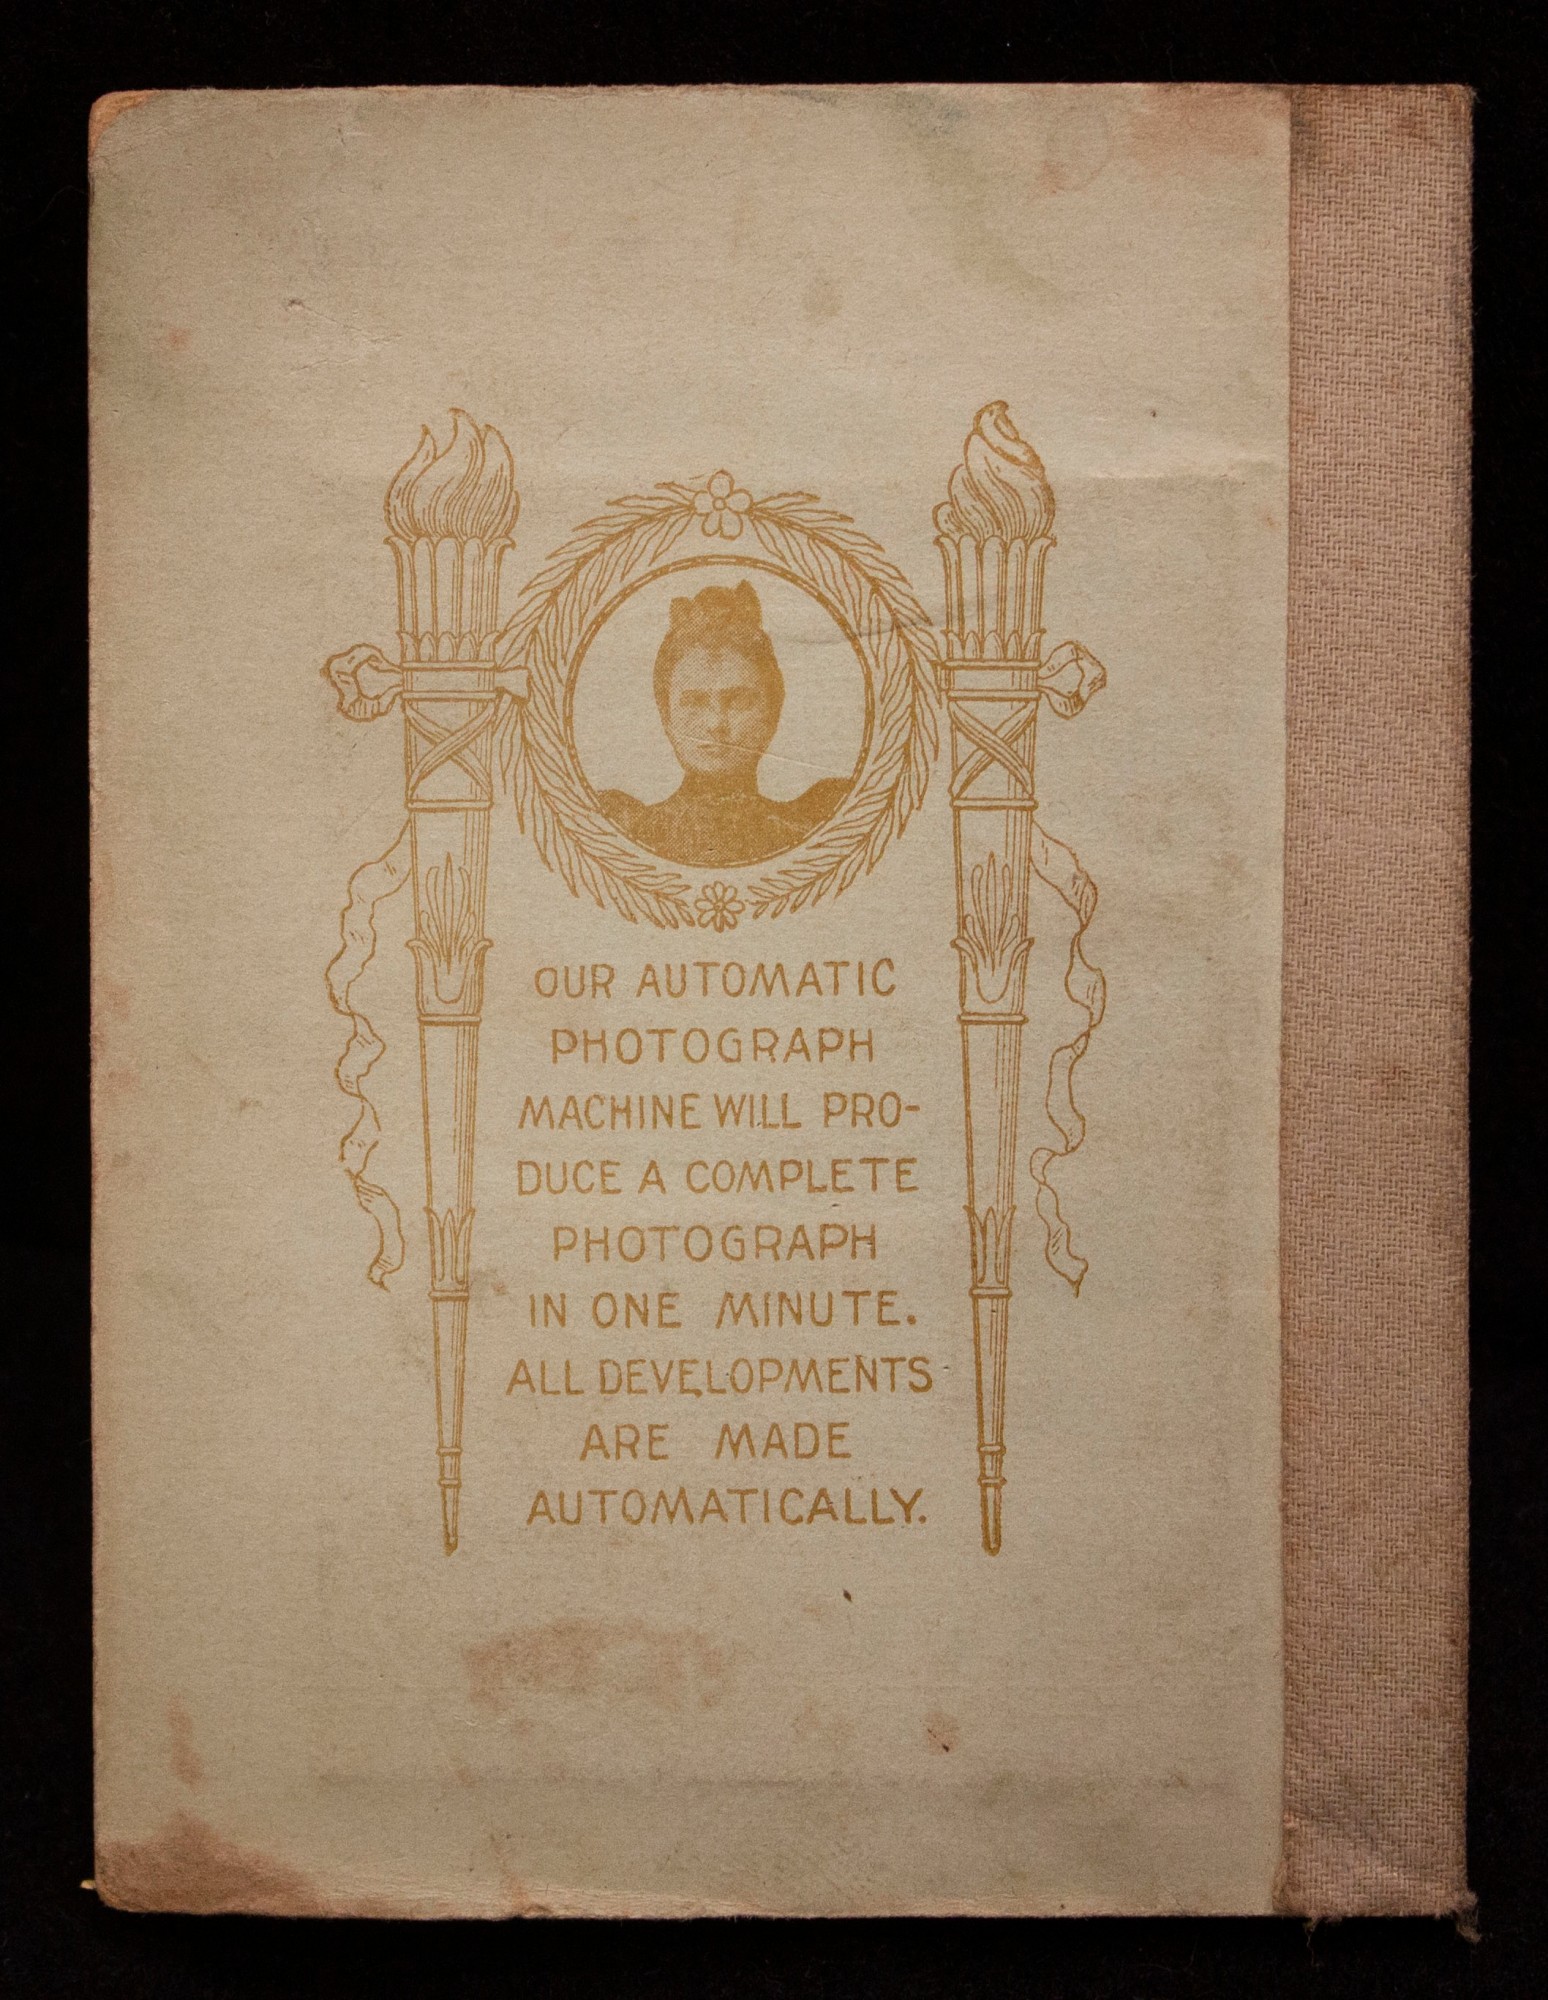 OUR AUTOMATIC
PHOTOGRAPH
MACHINE WILL PRO-
DUCE A COMPLETE
PHOTOGRAPH
IN ONE MINUTE.
ALL DEVELOPMENTS
ARE MADE
AUTOMATICALLY.